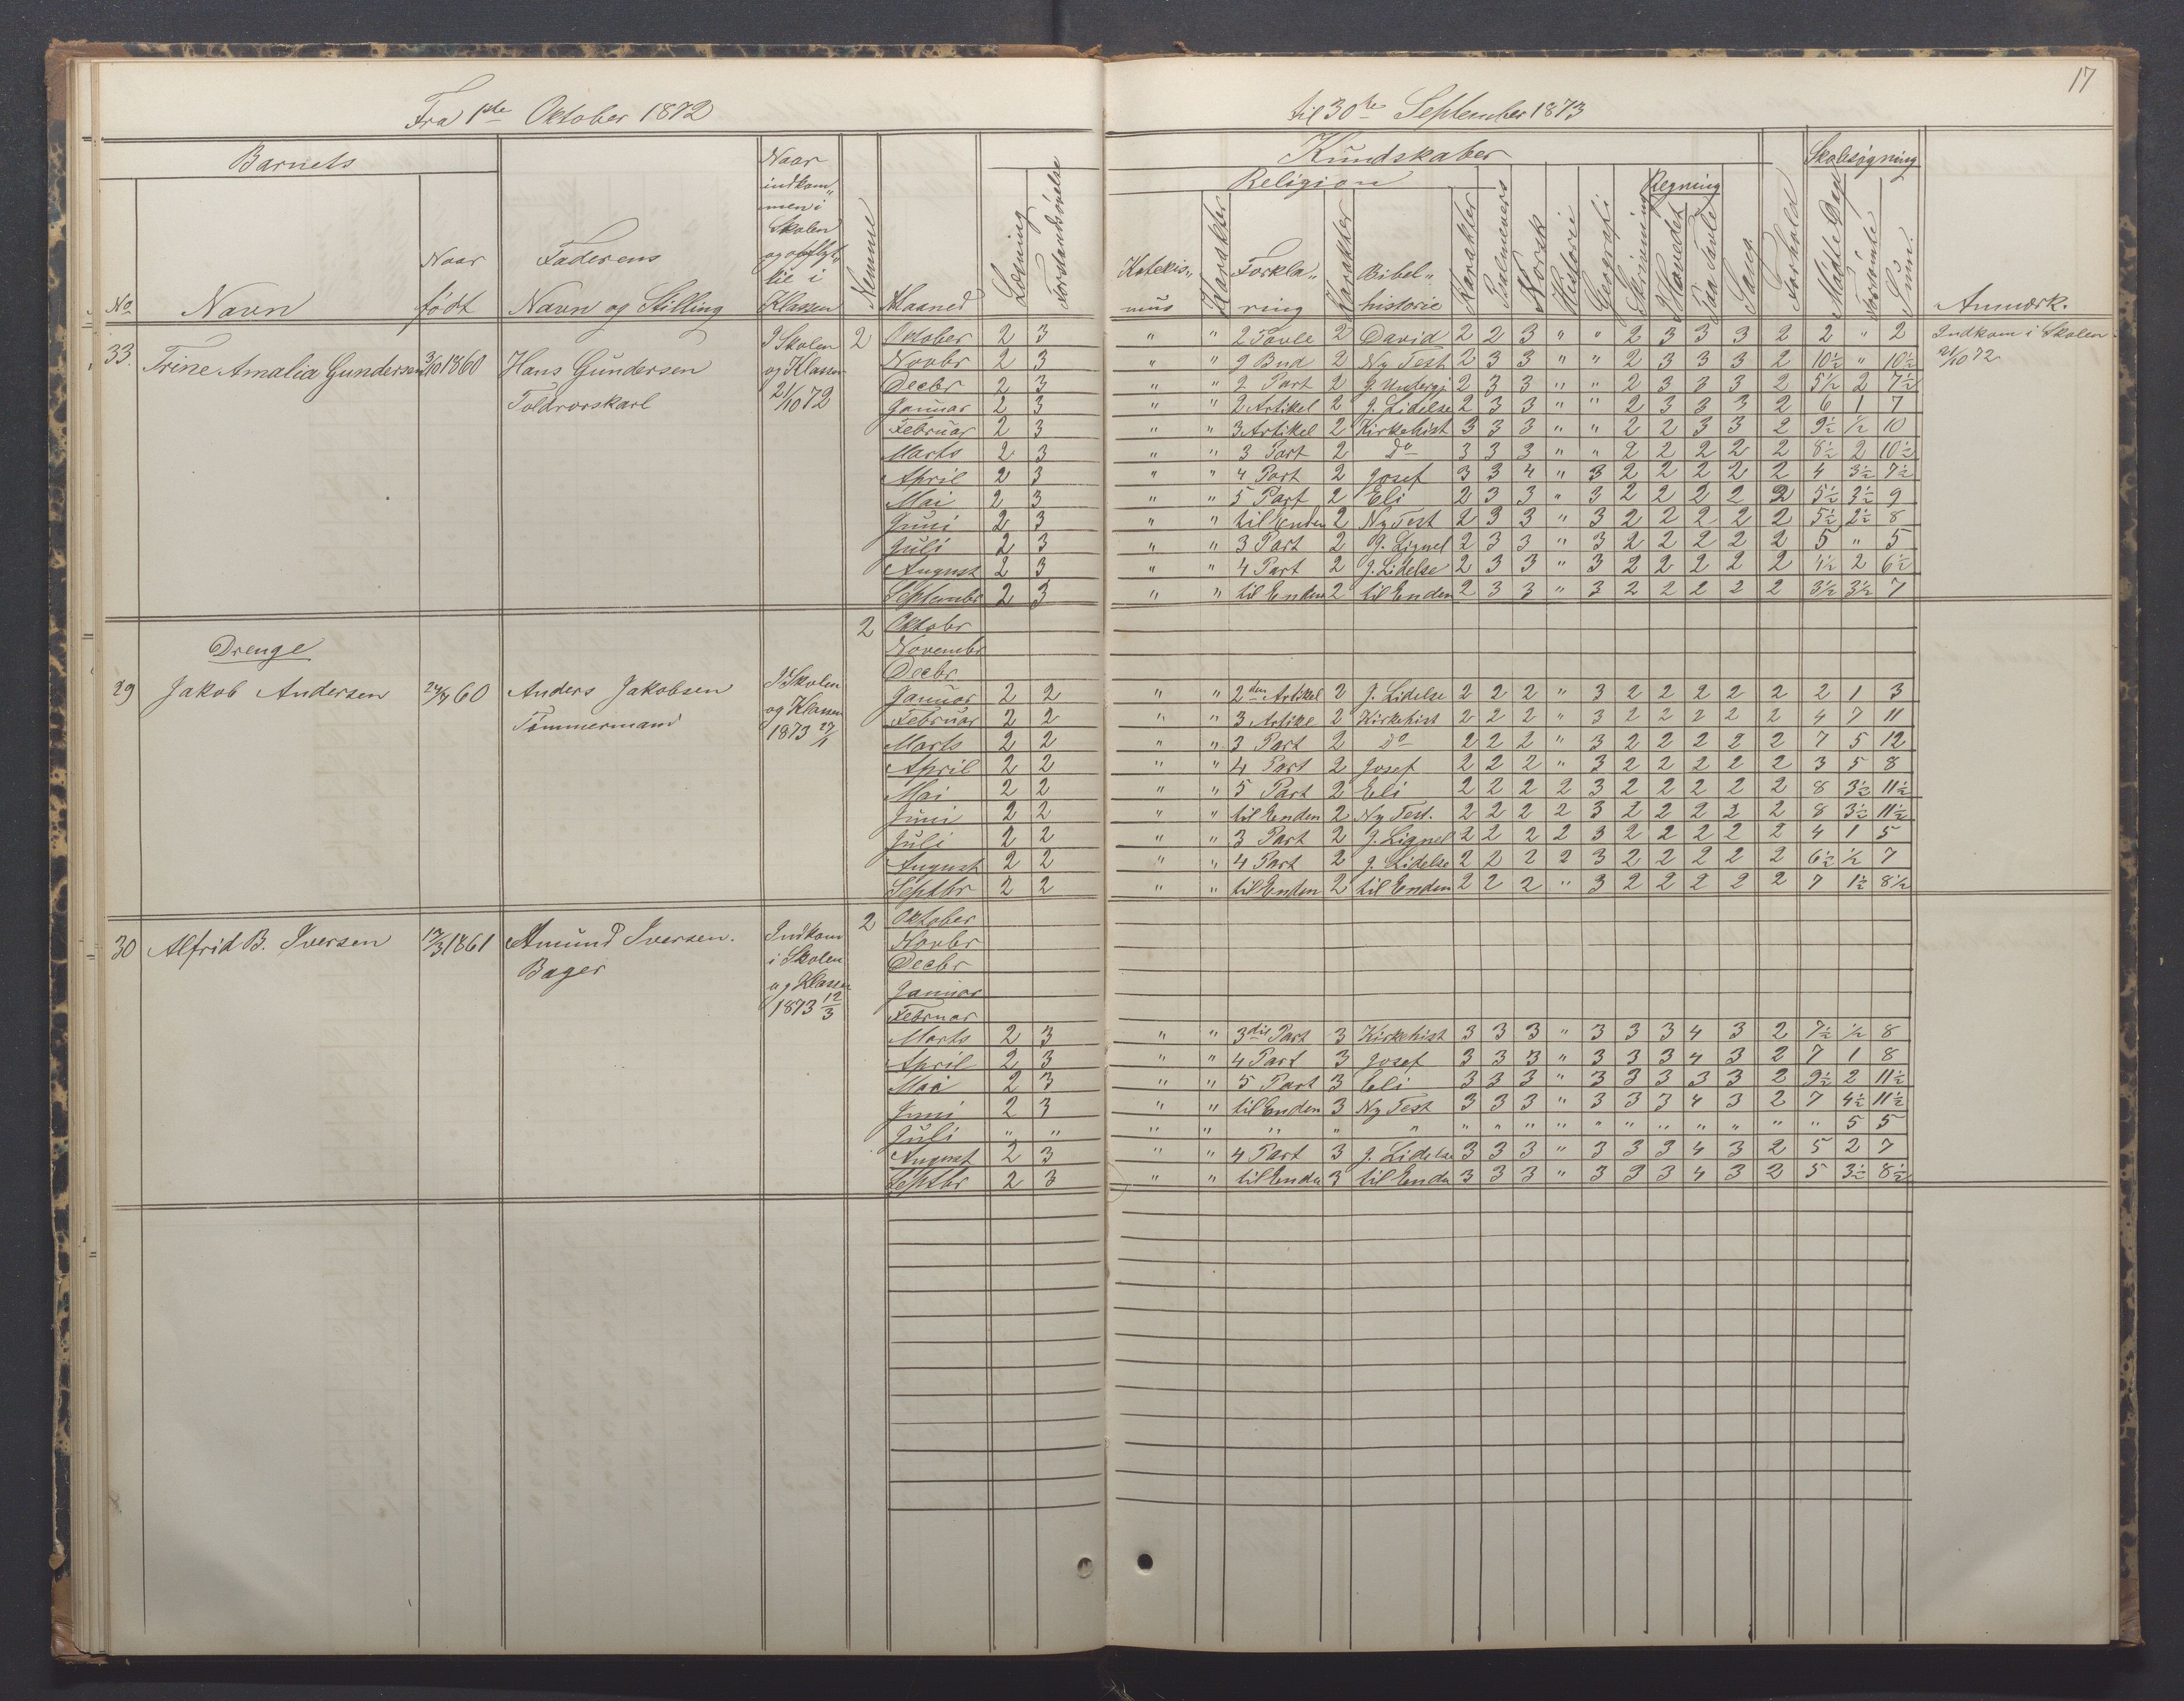 17
Fra 1ste Oktober 1872 til 30te September 1873
Barnets Naar indkommen i Skolen og opflyttet i Klassen Kundskaber Skolesøgning
Religion Regning
No Navn Naar født Faderens Navn og Stilling Nummer Maaned Læsning Forstandsøvelse Katekismus Karakter Forklaring Karakter Bibelhistorie Karakter Psalmevers Norsk Historie Geografi Skrivning I Hovedet Paa Tavle Sang Forhold Mødte Dage Forsømte Sum Anmærk.
33. Trine Amalia Gundersen 3/10 1860 Hans Gundersen Toldrorskarl I Skolen og Klassen 21/10 72 2
Oktober 2 3 " " 2 Tavle 2 David 2 2 3 " " 2 3 3 3 2 2 " 2 Indkom i Skolen
Novbr 2 3 " " 9 Bud 2 Ny Test 2 3 3 " " 2 3 3 3 2 10½ " 10½ 21/10 72
Decbr 2 3 " " 2 Part 2 J. Undergj 2 3 3 " " 2 3 3 3 2 5½ 2 7½
Januar 2 3 " " 2 Artikel 2 J. Lidelse 2 3 3 " " 2 3 3 3 2 6 1 7
Februar 2 3 " " 3 Artikel 2 Kirkehist 3 3 3 " " 2 2 3 3 2 9½ ½ 10
Marts 2 3 " " 3 Part 2 Do 3 3 3 " " 2 2 2 2 2 8½ 2 10½
April 2 3 " " 4 Part 2 Josef 3 3 4 " 3 2 2 2 2 2 4 3½ 7½
Mai 2 3 " " 5 Part 2 Eli 2 3 3 " 3 2 2 2 2 2 5½ 3½ 9
Juni 2 3 " " til Enden 2 Ny Test 2 3 3 " 3 2 2 2 2 2 5½ 2½ 8
Juli 2 3 " " 3 Part 2 J. Lignel 2 3 3 " 3 2 2 2 2 2 5 " 5
August 2 3 " " 4 Part 2 J. Lidelse 2 3 3 " 3 2 2 2 2 2 4½ 2 6½
Septembr 2 3 " " til Enden 2 til Enden 2 3 3 " 3 2 2 2 2 2 3½ 3½ 7
Drenge
29 Jakob Andersen 24/4 60 Anders Jakobsen Tømmermand I Skolen og Klassen 1873 27/1 2
Oktobr
Novembr
Decbr
Januar 2 2 " " 2den Artikel 2 J. Lidelse 2 2 2 " 3 2 2 2 2 2 2 1 3
Februar 2 2 " " 3 Artikel 2 Kirkehist 2 2 2 " 3 2 2 2 2 2 4 7 11
Marts 2 2 " " 3 Part 2 Do 2 2 2 " 3 2 2 2 2 2 7 5 12
April 2 2 " " 4 Part 2 Josef 2 2 2 " 3 2 2 2 2 2 3 5 8
Mai 2 2 " " 5 Part 2 Eli 2 2 2 2 3 2 2 2 2 2 8 3½ 11½
Juni 2 2 " " til Enden 2 Ny Test. 2 2 2 2 3 2 2 2 2 2 8 3½ 11½
Juli 2 2 " " 3 Part 2 J. Lignel 2 2 2 2 3 2 2 2 2 2 4 1 5
August 2 2 " " 4 Part 2 J. Lidelse 2 2 2 2 3 2 2 2 2 2 6½ ½ 7
Septbr 2 2 " " til Enden 2 til Enden 2 2 2 " 3 2 2 2 2 2 7 1½ 8½
30 Alfrid B. Iversen 17/3 1861 Amund Iversen. Bager Indkom i Skolen og Klassen 1873 12/3 2
Oktober
Novbr
Decbr
Januar
Februar
Marts 2 3 " " 3die Part 3 Kirkehist 3 3 3 " 3 3 3 4 3 2 7½ ½ 8
April 2 3 " " 4 Part 3 Josef 3 3 3 " 3 3 3 4 3 2 7 1 8
Mai 2 3 " " 5 Part 3 Eli 3 3 3 " 3 3 3 3 3 2 9½ 2 11½
Juni 2 3 " " til Enden 3 Ny Test 3 3 3 " 3 3 3 4 3 2 7 4½ 11½
Juli " " " " " " " " " " " " " " " " " " 5 5
August 2 3 " " 4 Part 3 J. Lidelse 3 3 3 " 3 3 3 4 3 2 5 2 7
Septbr 2 3 " " til Ende 3 til Ende 3 3 3 " 3 3 3 4 3 2 5 3½ 8½